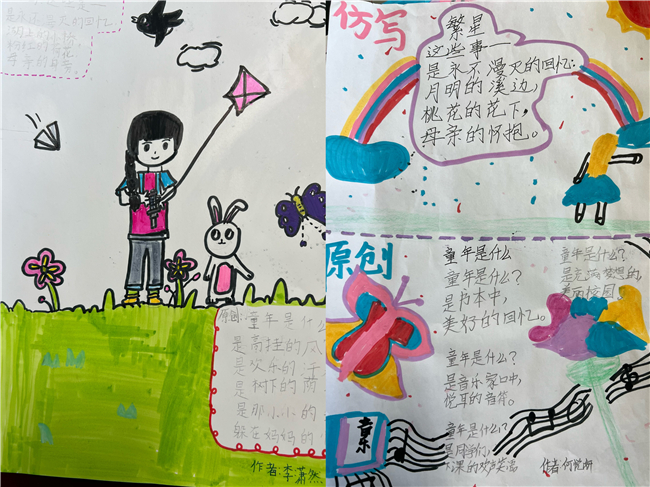 是永不漫灭的回忆
母亲的身旁
童年是什么
是高挂的风
是欢乐的
是树下的
是那小小的
躲在妈妈的
作者:李萧然
仿写
繁星
这些事——
是永不漫灭的回忆:
月明的溪边,
桃花的花下,
母亲的怀抱。
原创
童年是什么
童年是什么?
是书本中,
美好的回忆。
童年是什么?
是音乐家口中,
悦耳的音符。
童年是什么?
是同学们
下课的欢声笑语
童年是什么?
是充满梦想的
美丽校园
音乐
作者:何